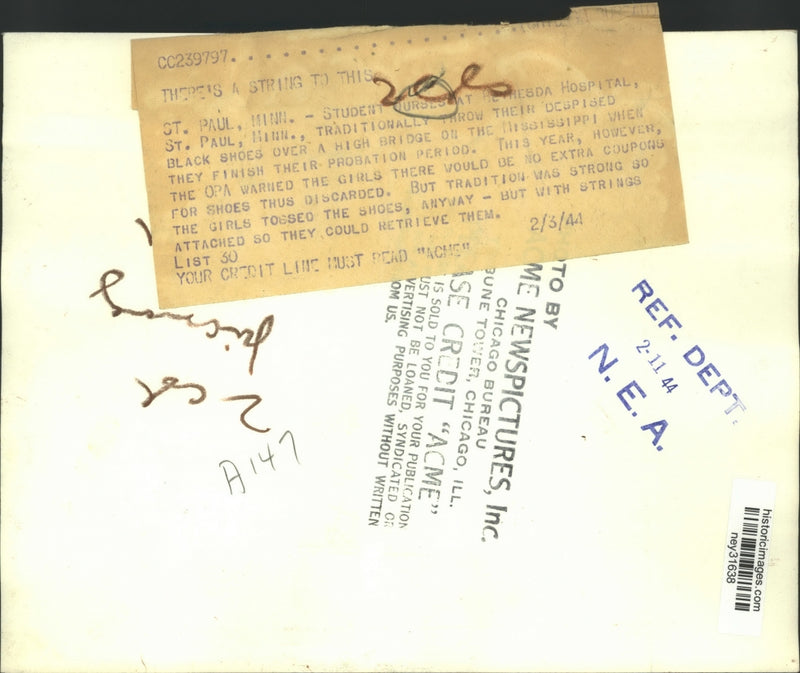 CC239797
THERE'S A STRING TO THIS
ST. PAUL, MINN. - STUDENT NURSES AT BETHESDA HOSPITAL,
ST. PAUL, MINN., TRADITIONALLY THROW THEIR DESPISED
BLACK SHOES OVER A HIGH BRIDGE ON THE MISSISSIPPI WHEN
THEY FINISH THEIR PROBATION PERIOD. THIS YEAR, HOWEVER,
THE OPA WARNED THE GIRLS THERE WOULD BE NO EXTRA COUPONS
FOR SHOES THUS DISCARDED. BUT TRADITION WAS STRONG SO
THE GIRLS TOSSED THE SHOES, ANYWAY - BUT WITH STRINGS
ATTACHED SO THEY COULD RETRIEVE THEM. 2/3/44
LIST 30
YOUR CREDIT LINE MUST READ "ACME"
OTO BY
ME NEWSPICTURES, Inc.
CHICAGO BUREAU
BUNE TOWER, CHICAGO, ILL.
ASE CREDIT "ACME"
IS SOLD TO YOU FOR YOUR PUBLICATION
UST NOT BE LOANED, SYNDICATED OR
VERTISING PURPOSES WITHOUT WRITTEN
OM US.
REF. DEPT.
2-11 44
N. E. A.
2 col
A147
historicimages.com
ney31638